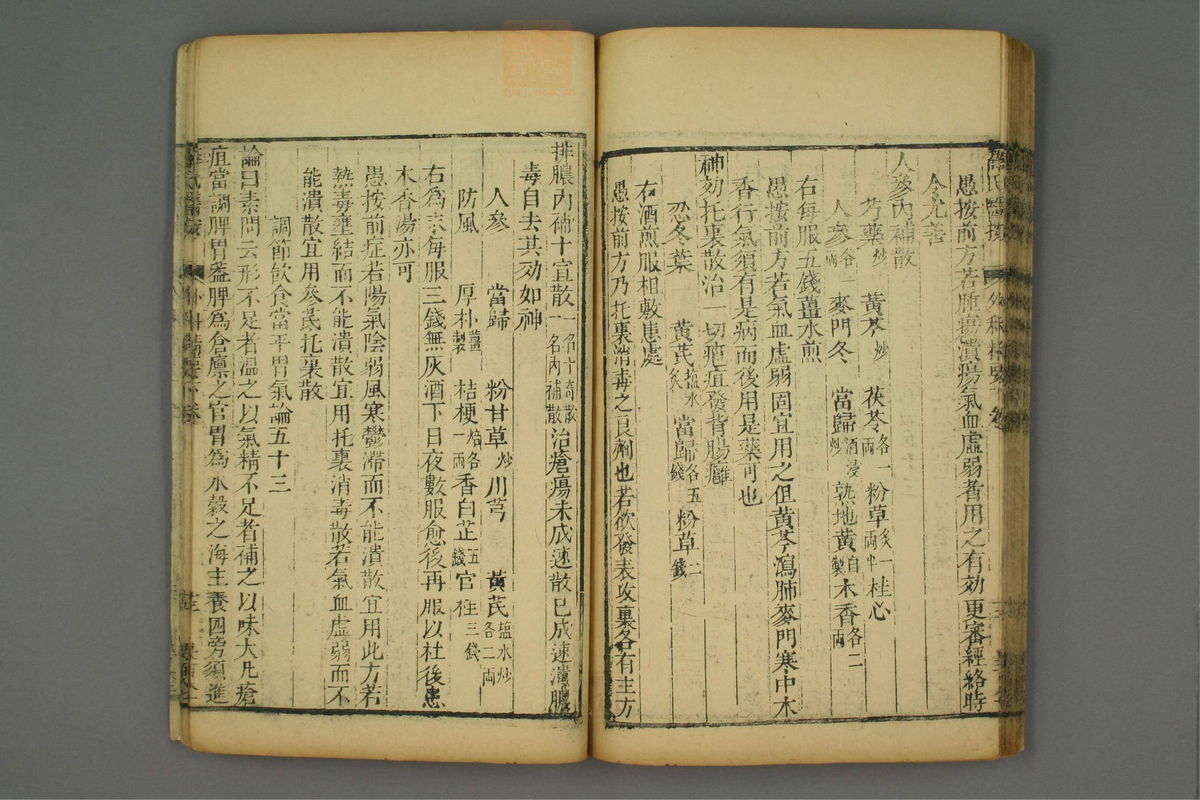 薛氏醫按
愚按前方若膿瘍潰瘍氣血虛弱者用之有効更審經絡時
令尤善
人參內補散
芍藥炒 黃芩炒 茯苓各一兩 粉草炙一兩半 桂心
人參各一兩 麥門冬 當歸酒浸炒 熟地黃自製 木香各二兩
右每服五錢薑水煎
愚按前方若氣血虛弱固宜用之但黃芩瀉肺麥門寒中木
香行氣須有是病而後用是藥可也
神効托裏散治一切癰疽發背腸癰
忍冬葉 黃芪塩水炙 當歸各五錢 粉草二錢
右酒煎服相敷患處
愚按前方乃托裏消毒之良劑也若欲發表攻裏各有主方
排膿內補十宣散一名十奇散一名內補散治瘡瘍未成速散已成速潰膿
毒自去其効如神
人參 當歸 粉甘草炒 川芎 黃芪塩水炒各二兩
防風 厚朴薑製 桔梗焙各一兩 香白芷五錢 官桂三錢
右為末每服三錢無灰酒下日夜數服愈後再服以杜後患
木香湯亦可
愚按前症若陽氣陰弱風寒鬱滯而不能潰散宜用此方若
熱毒壅結而不能潰散宜用托裏消毒散若氣血虛弱而不
能潰散宜用參芪托裏散
調節飲食當平胃氣論五十三
論曰素問云形不足者溫之以氣精不足者補之以味大凡瘡
疽當調脾胃蓋脾為倉廩之官胃為水穀之海主養四旁須進